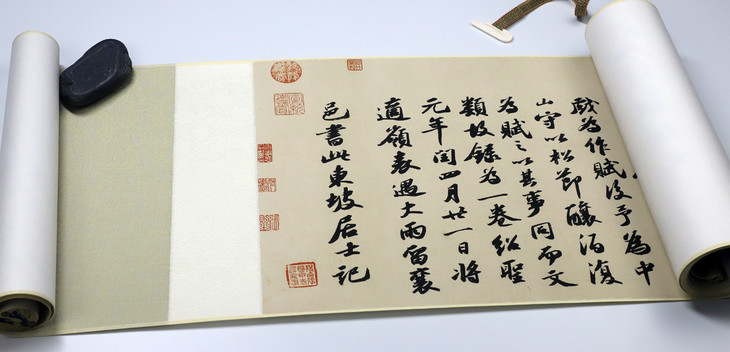 戲為作賦後予為中
山守以松節釀酒復
為賦之以其事同而文
類故錄為一卷紹聖
元年閏四月廿一日將
適嶺表遇大雨留襄
邑書此東坡居士記